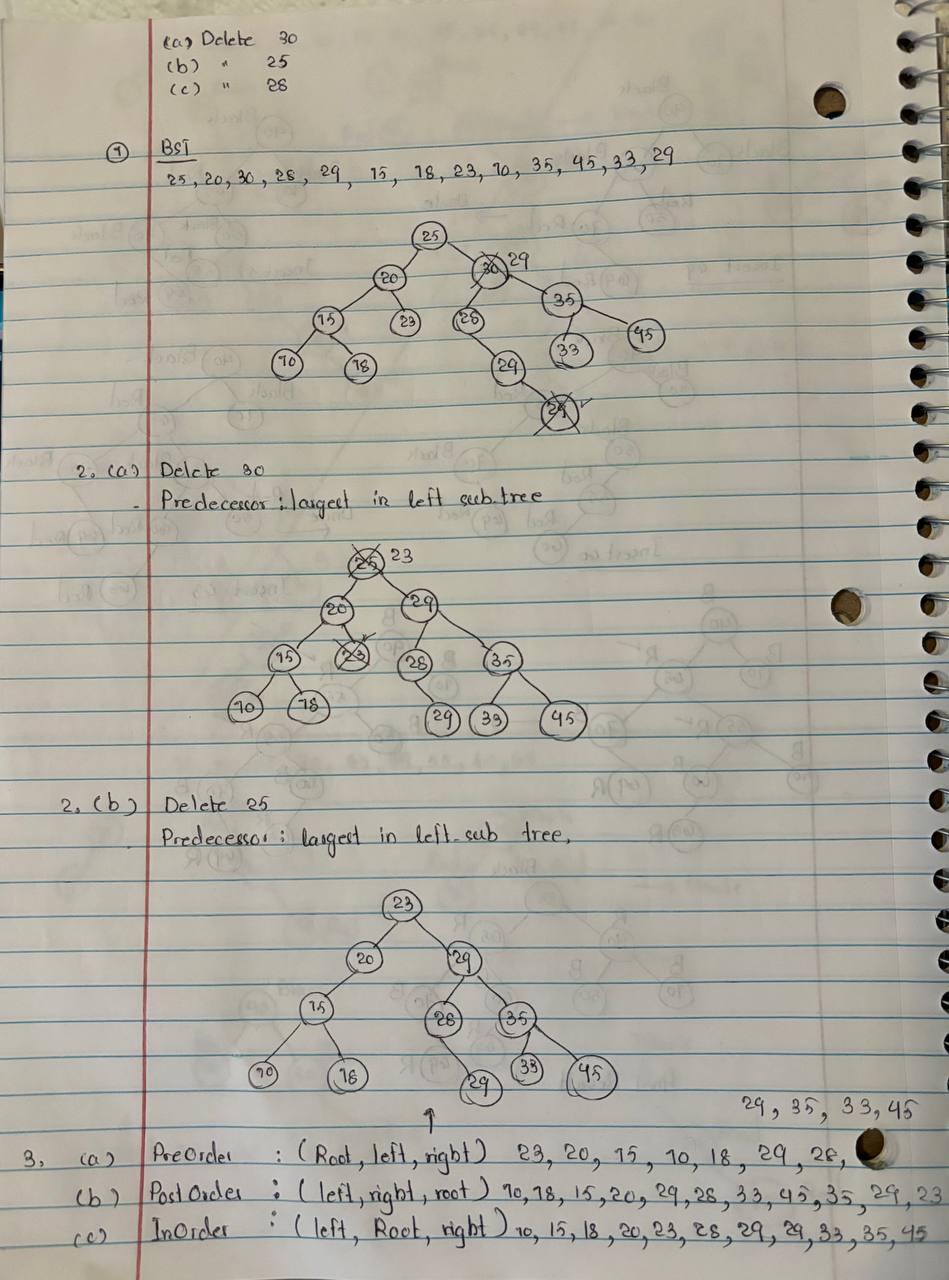 (a) Delete 30
(b) " 25
(c) " 28
1 BST
25, 20, 30, 28, 29, 15, 18, 23, 10, 35, 45, 33, 29
25
20 30 29
15 23 28 35
10 18 29 33 45
29
2. (a) Delete 30
- Predecessor : largest in left sub tree
25 23
20 29
15 23 28 35
10 18 29 33 45
2. (b) Delete 25
Predecessor : largest in left sub tree,
23
20 29
15 28 35
10 18 29 33 45
29, 35, 33, 45
3. (a) PreOrder : (Root, left, right) 23, 20, 15, 10, 18, 29, 28,
(b) PostOrder : (left, right, root) 10, 18, 15, 20, 29, 28, 33, 45, 35, 29, 23
(c) InOrder : (left, Root, right) 10, 15, 18, 20, 23, 28, 29, 29, 33, 35, 45